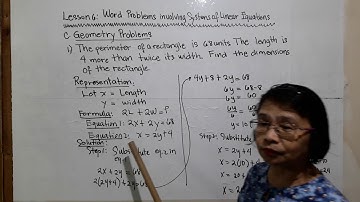 Lesson 6: Word Problems involving Systems of Linear Equations
C Geometry Problems
1) The perimeter of a rectangle is 68 units The length is
4 more than twice its width. Find the dimensions
of the rectangle.
Representation:
Let x = Length
y = width
Formula: 2L + 2W = P
Equation 1: 2x + 2y = 68
Equation 2: x = 2y+4
Solution:
Step 1: Substitute eq. 2 in
eq.
2x + 2y = 68
2(2y+4) + 2y = 68
4y+8+2y = 68
6y = 68-8
6y = 60
Step 2: Substitute
x = 2y+4
x = 2(10)
x = 20
x =